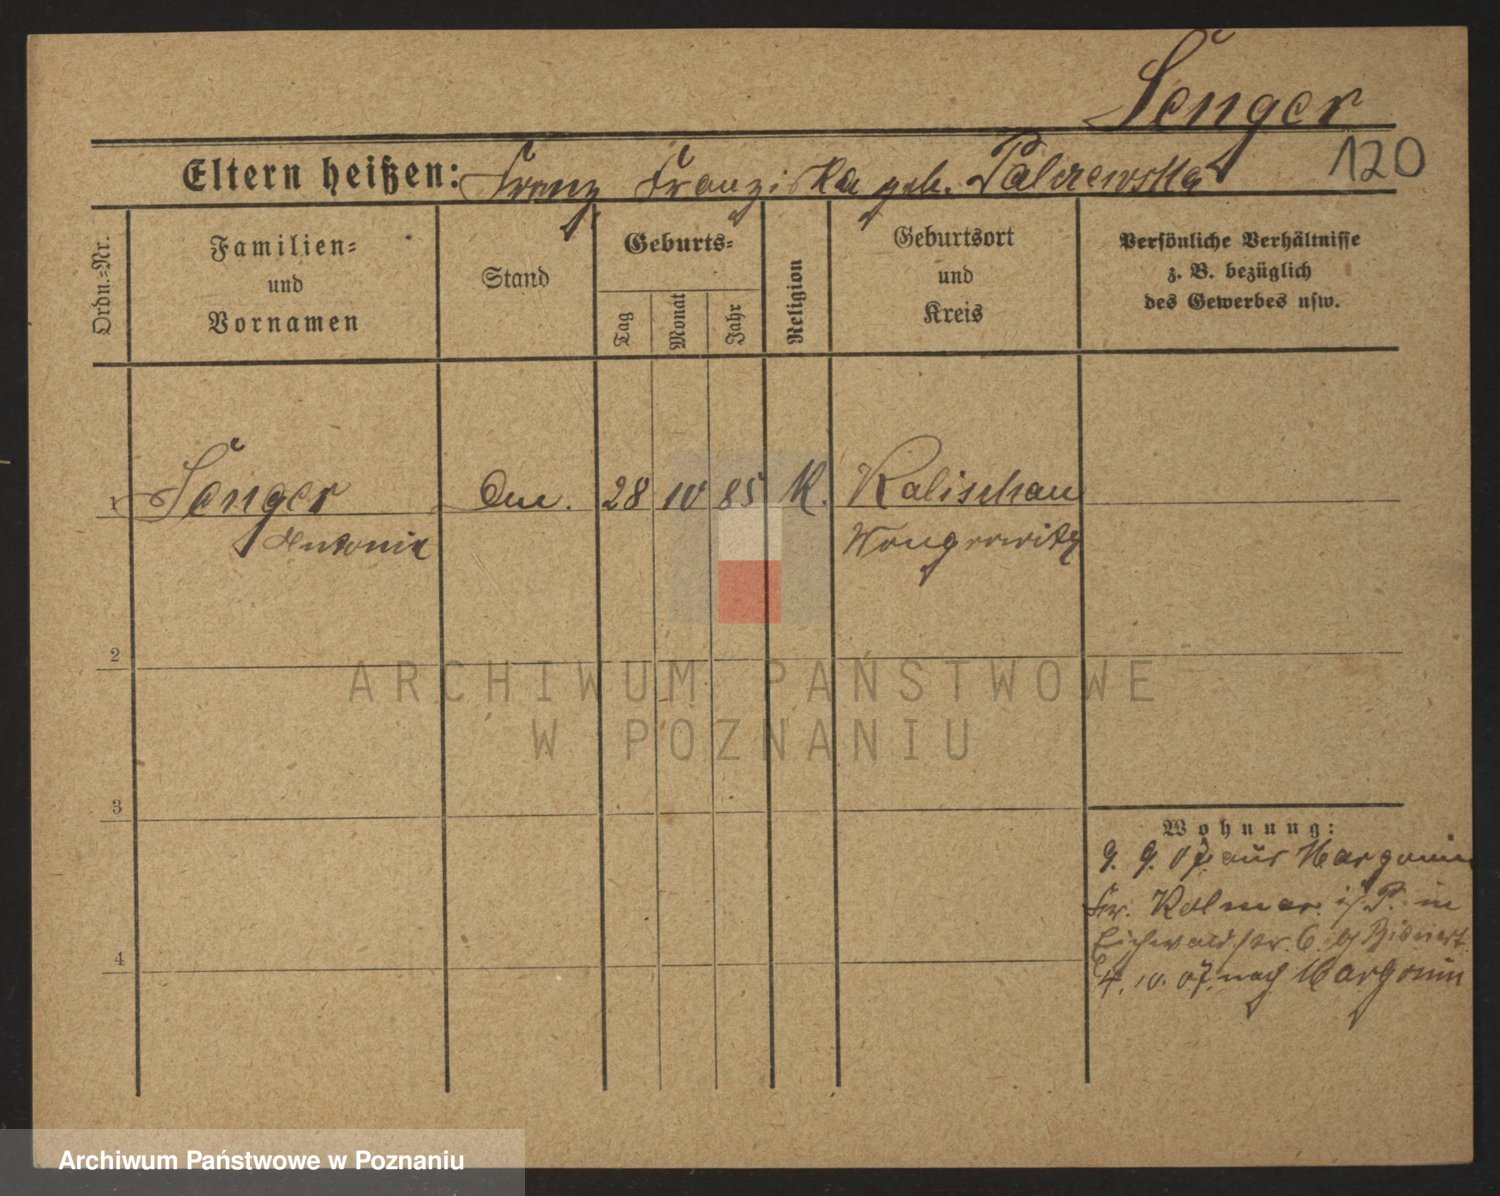 Senger
120
Eltern heißen: Franz Franziska geb.
Ordn.-Nr.
Familien- und Vornamen
Stand
Geburts-
Tag
Monat
Jahr
Religion
Geburtsort und Kreis
Persönliche Verhältnisse z. B. bezüglich des Gewerbes usw.
1 Senger 28 10 85 K. Kalischau
Antonie Wongrowitz
2
3
Wohnung:
9. 9. 07. aus Margonin
Kr. Kolmar i/P. in
Eichwaldstr. 6. b/
4
4. 10. 07. nach Margonin
ARCHIWUM PAŃSTWOWE
W POZNANIU
Archiwum Państwowe w Poznaniu